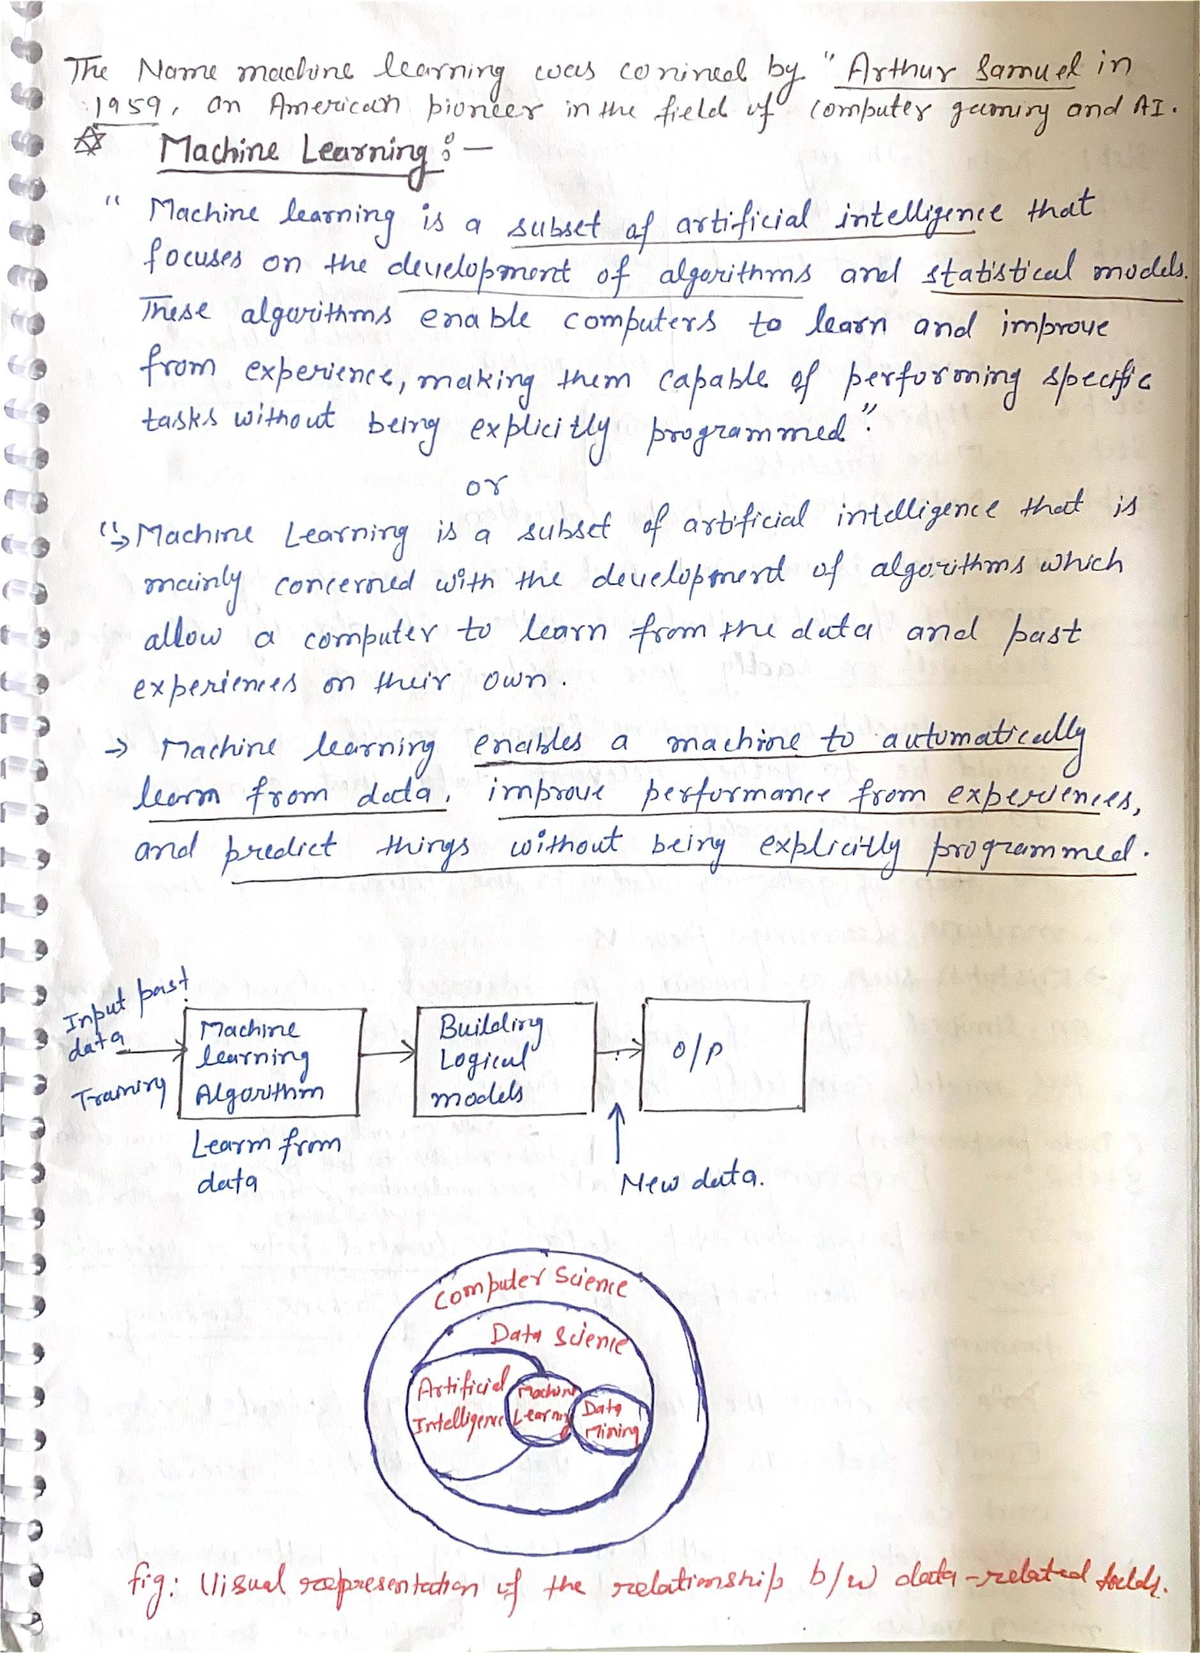 The Name machine learning was conined by "Arthur Samuel in
1959, an American pioneer in the field of computer gaming and AI.
Machine Learning :-
" Machine learning is a subset of artificial intelligence that
focuses on the development of algorithms and statistical models.
These algorithms enable computers to learn and improve
from experience, making them capable of performing specific
tasks without being explicitly programmed".
or
"→ Machine Learning is a subset of artificial intelligence that is
mainly concerned with the development of algorithms which
allow a computer to learn from the data and past
experiences on their own.
→ Machine learning enables a machine to automatically
learn from data, improve performance from experiences,
and predict things without being explicitly programmed.
Input past
data
Training
Machine
learning
Algorithm
Learn from
data
Building
Logical
models
O/P
New data.
Computer Science
Data Science
Artificial
Intelligence
Machine
Learning
Data
Mining
fig: Visual representation of the relationship b/w data-related fields.